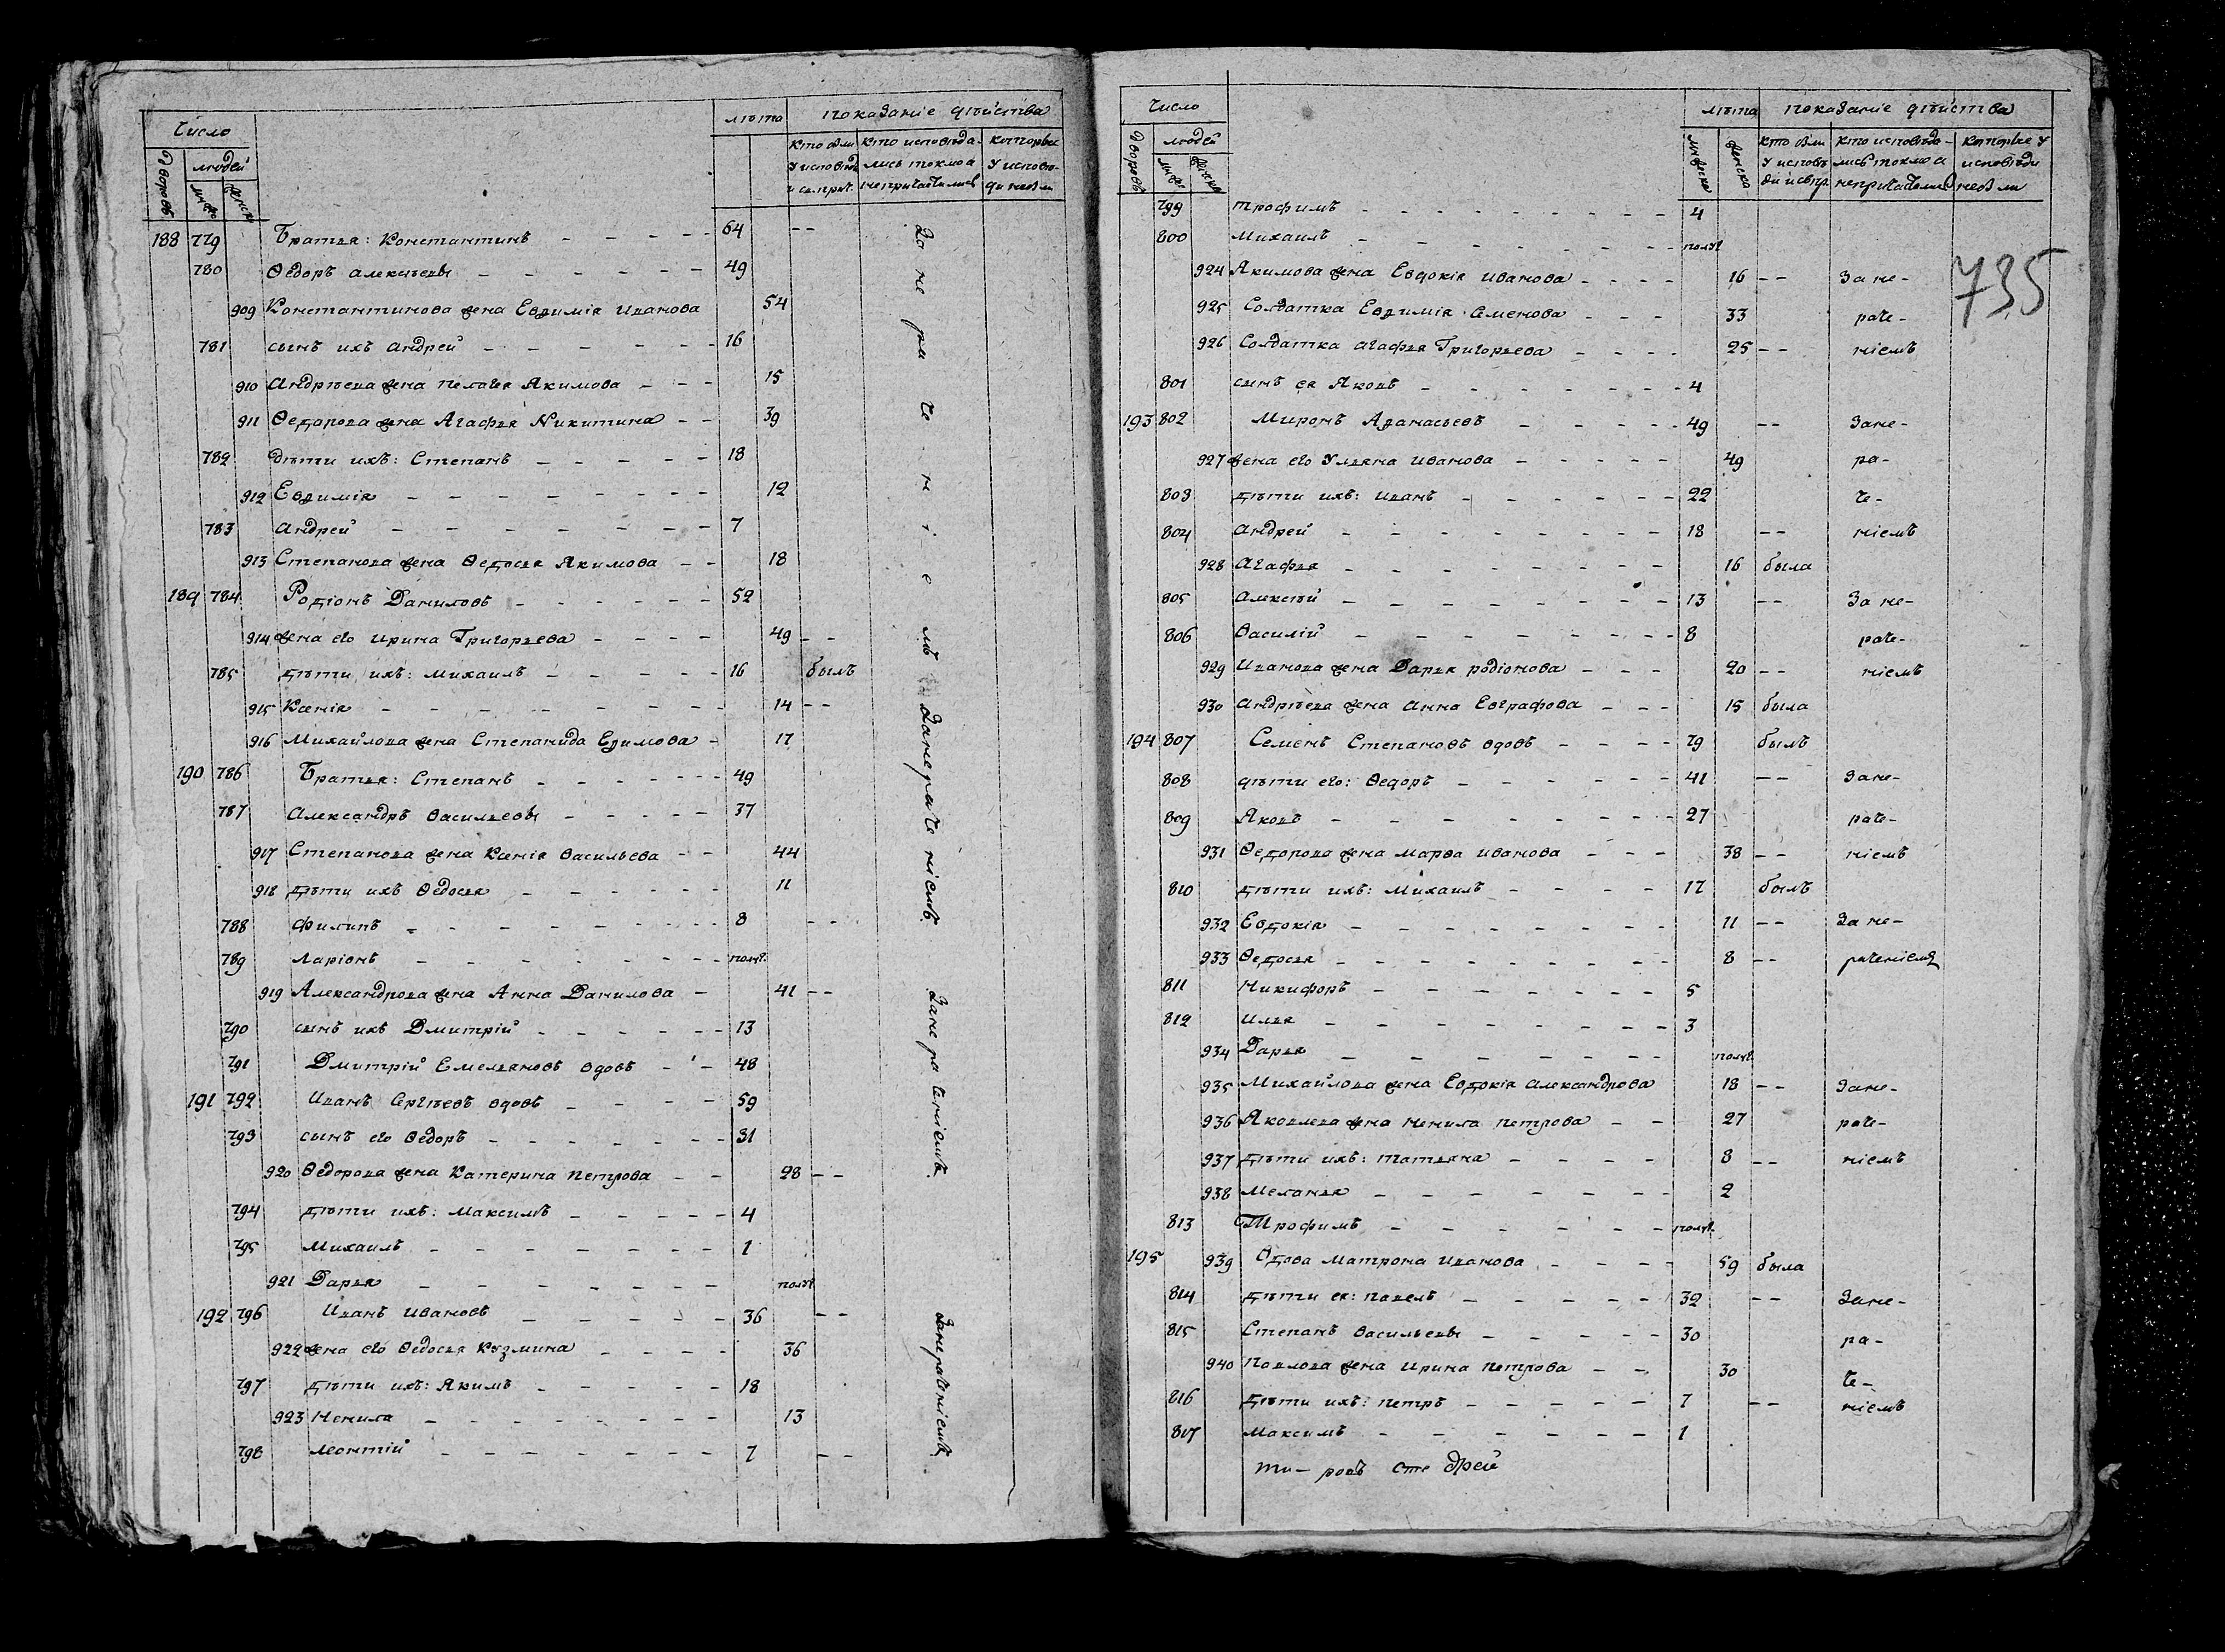 Число лѣта показаніе дѣйства
дворовъ людей кто были у исповѣди и св. прич. кто исповѣдались токмо а непричастились которые у исповѣди небыли
муж. женск.
188 779 Братья: Константинъ 64
780 Ѳедоръ Алексѣевы 49
909 Константинова жена Евфимія Иванова 54
781 сынъ ихъ Андрей 16
910 Андрѣева жена Пелагея Якимова 15
911 Ѳедорова жена Агафья Никитина 39
782 дѣти ихъ: Степанъ 18
912 Евфимія 12
783 Андрей 7
913 Степанова жена Ѳедосья Якимова 18
За нераченіемъ
189 784 Родіонъ Даниловъ 52
914 жена его Ирина Григорьева 49
785 дѣти ихъ: Михаилъ 16 былъ
915 Ксенія 14
916 Михайлова жена Степанида Ефимова 17
190 786 Братья: Степанъ 49
787 Александръ Васильевы 37
917 Степанова жена Ксенія Васильева 44
918 дѣти ихъ Ѳедосья 11
788 Филипъ 8
789 Ларіонъ полуг.
За нераченіемъ
919 Александрова жена Анна Данилова 41
790 сынъ ихъ Дмитрій 13
791 Дмитрій Емельяновъ вдовъ 48
191 792 Иванъ Сергѣевъ вдовъ 59
793 сынъ его Ѳедоръ 31
920 Ѳедорова жена Катерина Петрова 28
За нераченіемъ
794 дѣти ихъ: Максимъ 4
795 Михаилъ 1
921 Дарья полуг.
192 796 Иванъ Ивановъ 36
922 жена его Ѳедосья Кузмина 36
797 дѣти ихъ: Якимъ 18
923 Ненила 13
798 Леонтій 7
За нераченіемъ
Число лѣта показаніе дѣйства
дворовъ людей мужеска женска кто были у исповѣди и св. пр. кто исповѣдались токмо а непричастились которые у исповѣди небыли
муж. женска
735
799 Трофимъ 4
800 Михаилъ полуг.
924 Якимова жена Евдокія Иванова 16 За не-
925 Солдатка Евфимія Семенова 33 раче-
926 Солдатка Агафья Григорьева 25 ніемъ
801 сынъ ея Яковъ 4
193 802 Миронъ Афанасьевъ 49 Зане-
927 жена его Ульяна Иванова 49 ра-
803 дѣти ихъ: Иванъ 22 че-
804 Андрей 18 ніемъ
928 Агафья 16 была
805 Алексѣй 13 За не-
806 Василій 8 раче-
929 Иванова жена Дарья Родіонова 20 ніемъ
930 Андрѣева жена Анна Евграфова 15 была
194 807 Семенъ Степановъ вдовъ 79 былъ
808 дѣти его: Ѳедоръ 41 Зане-
809 Яковъ 27 раче-
931 Ѳедорова жена Марѳа Иванова 38 ніемъ
810 дѣти ихъ: Михаилъ 17 былъ
932 Евдокія 11 За не-
933 Ѳедосья 8 раченіемъ
811 Никифоръ 5
812 Илья 3
934 Дарья полуг.
935 Михайлова жена Евдокія Александрова 18 Зане-
936 Яковлева жена Ненила Петрова 27 раче-
937 дѣти ихъ: Татьяна 8 ніемъ
938 Меланья 2
813 Трофимъ полуг.
195 939 Вдова Матрона Иванова 59 была
814 дѣти ея: Павелъ 32 Зане-
815 Степанъ Васильевы 30 ра-
940 Павлова жена Ирина Петрова 30 че-
816 дѣти ихъ: Петръ 7 ніемъ
817 Максимъ 1